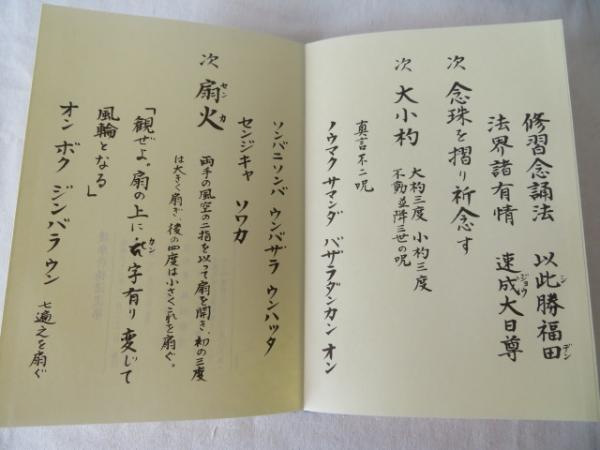 修習念誦法　以此勝福田
シ　デン
法界諸有情　速成大日尊
ジョウ
次　念珠を摺り祈念す
次　大小杓　大杓三度　小杓三度
不動並降三世の呪
真言不二呪
ノウマク サマンダ バザラダンカン オン
ソンバニソンバ ウンバザラ ウンハッタ
センジキャ ソワカ
次　扇火
センカ
両手の風空の二指を以って扇を開き、初の三度
は大きく扇ぎ、後の四度は小さくこれを扇ぐ。
「観ぜよ。扇の上に字有り変じて
カン
風輪となる」
オン ボク ジンバラ ウン　七遍之を扇ぐ